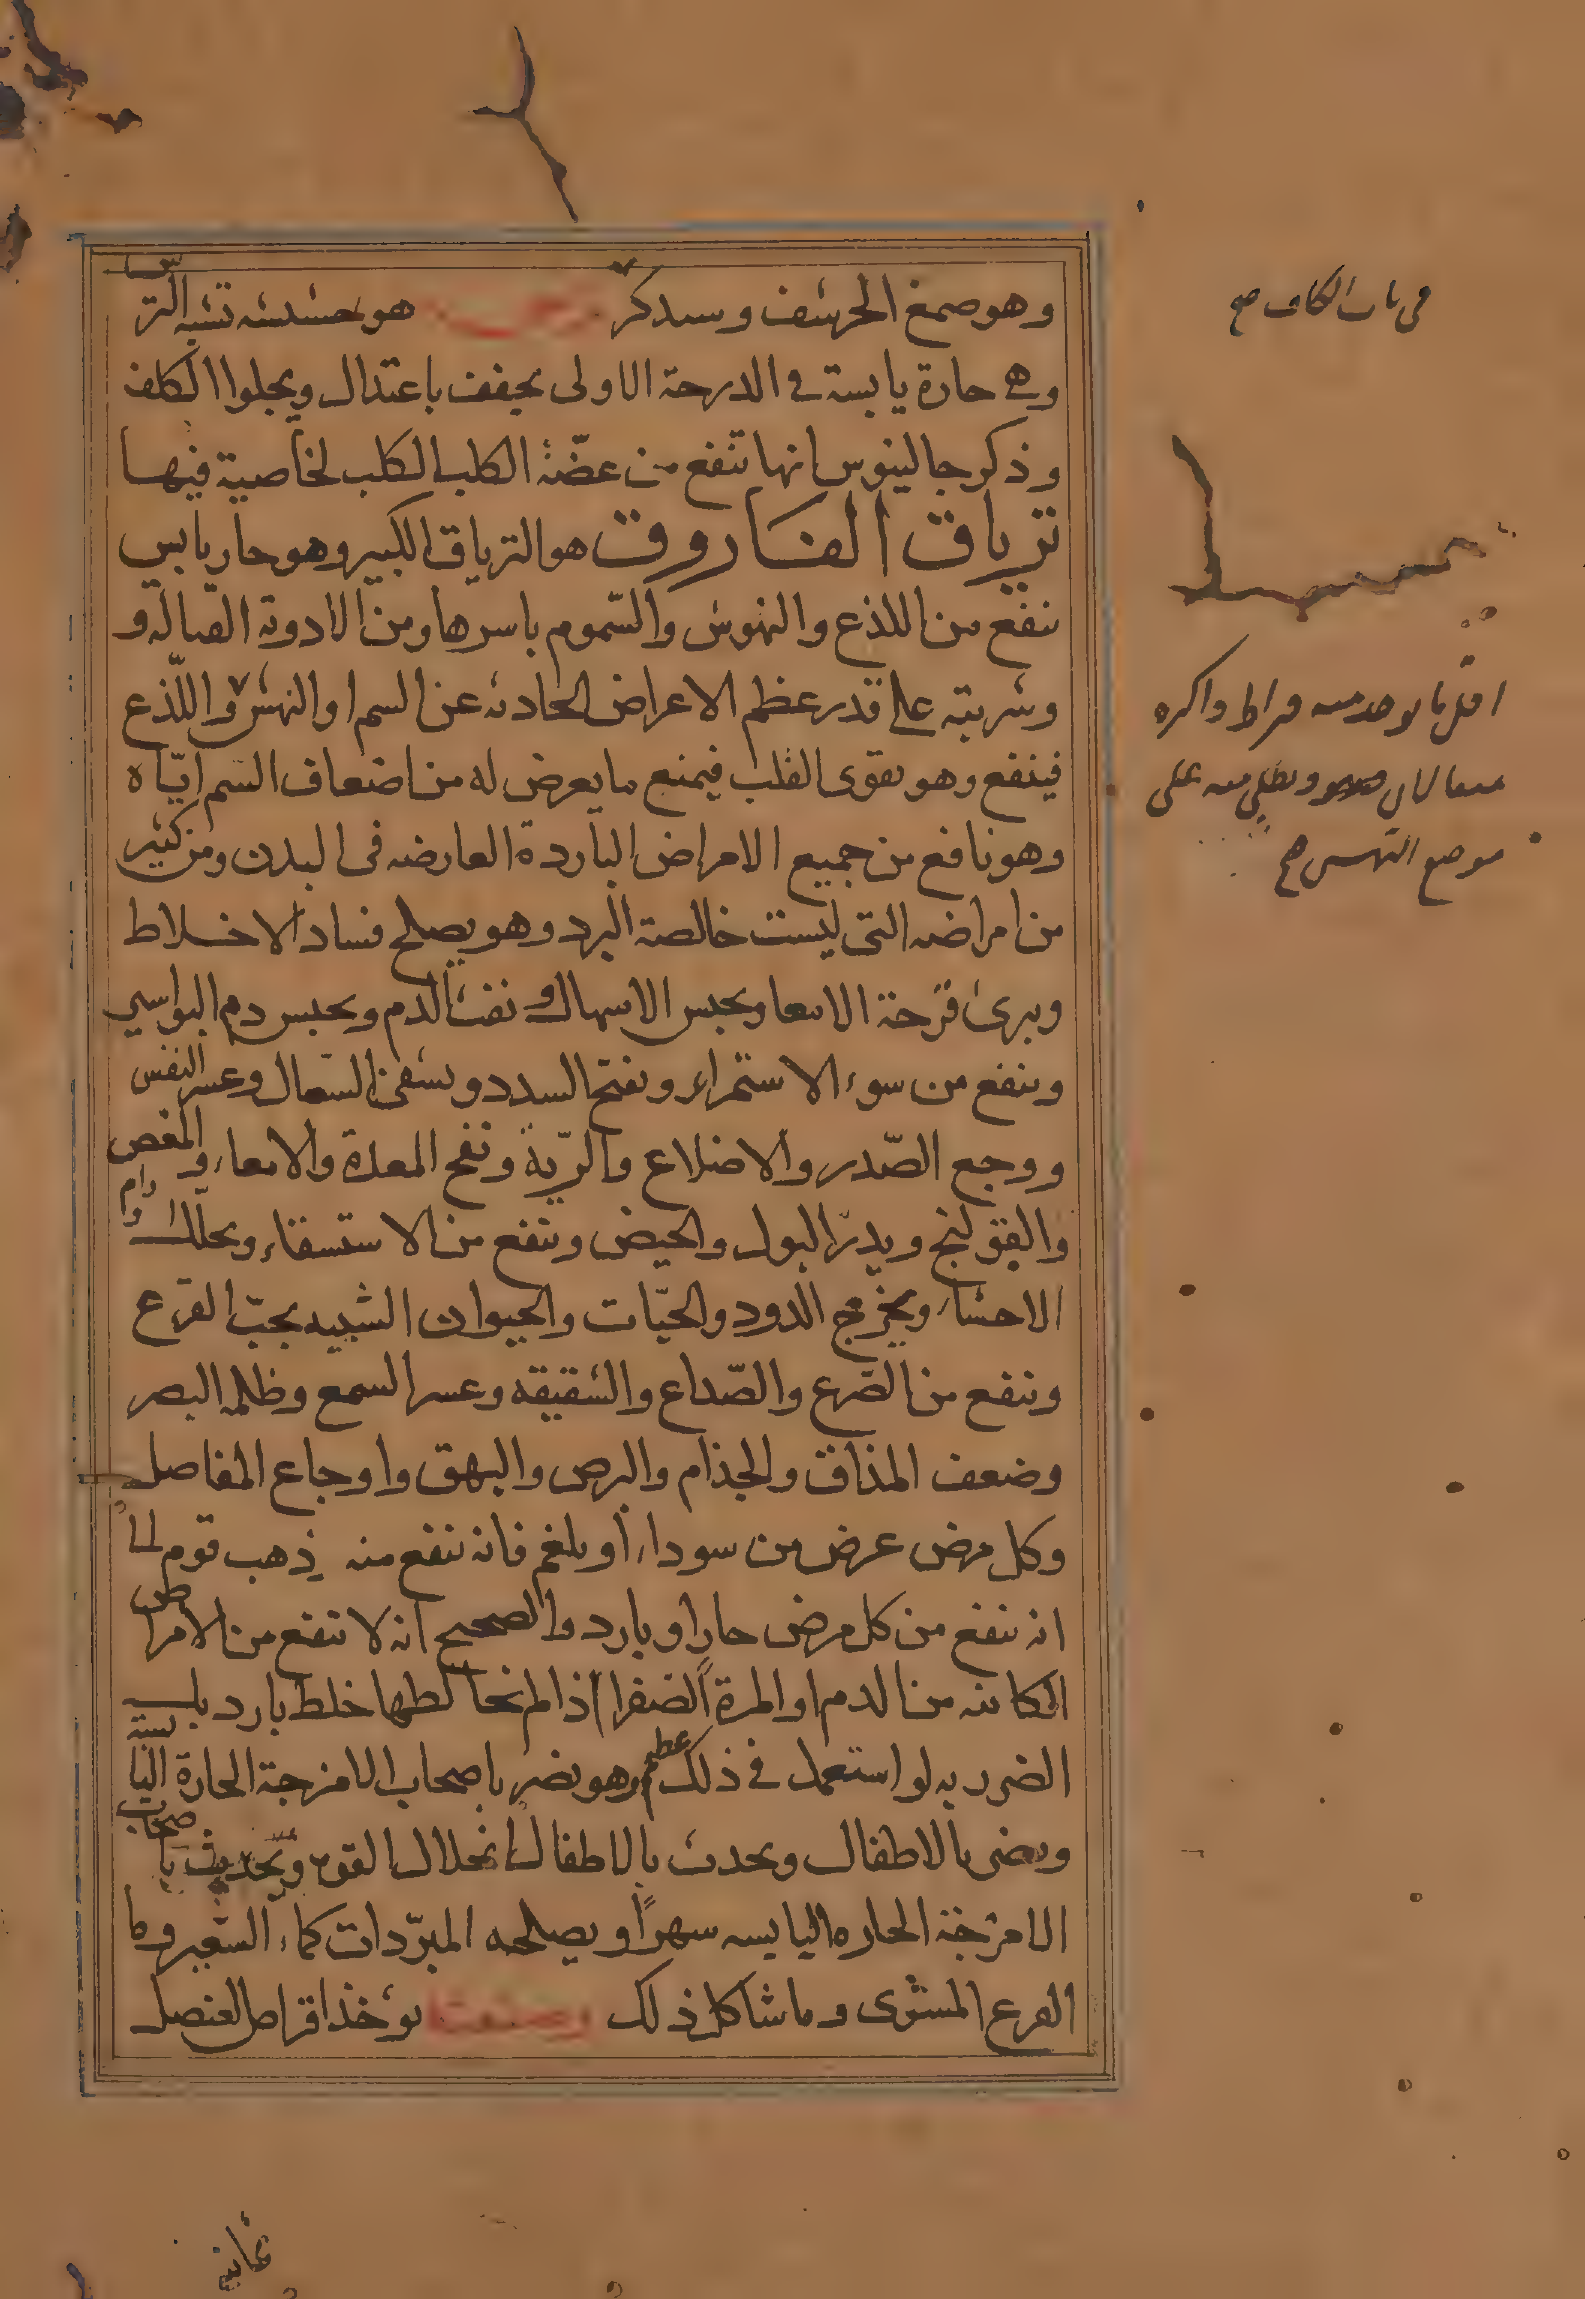 وهو صمغ الحرشف وسيذكر هو حشيشه تشبه الترس
في باب الكاف صح
وهي حارة يابسة في الدرجة الاولى يجفف باعتدال ويجلوا الكلف
وذكر جالينوس انها تنفع من عضة الكلب الكلب لخاصية فيها
ترياق الفاروق هو الترياق الكبير وهو حار يابس
ينفع من اللذع والنهوش والسموم باسرها ومن الادوية القتالة و
وشربته على قدر عظم الاعراض الحادثه عن السم او النهش واللذع
اقل ما يوخد منه قيراط واكثره
على
موضع النهس صح
فينفع وهو يقوى القلب فيمنع ما يعرض له من اضعاف السم اياه
وهو نافع من جميع الامراض الباردة العارضه في البدن ومن كثير
من امراضه التي ليست خالصة البرد وهو يصلح فساد الاخلاط
ويبرئ قرحة الامعا ويحبس الاسهال ونفث الدم ويحبس دم البواسير
وينفع من سوء الاستمراء ويفتح السدد ويشفي السعال وعسر النفس
ووجع الصدر والاضلاع والرية ونفخ المعدة والامعاء والمغص
والقولنج ويدر البول والحيض وينفع من الاستسقاء ويحلل اورام
الاحشاء ويخرج الدود والحيات والحيوان الشبيه بحب القرع
وينفع من الصرع والصداع والشقيقه وعسر السمع وظلمه البصر
وضعف المذاق والجذام والبرص والبهق واوجاع المفاصل
وكل مرض عرض من سوداء او بلغم فانه ينفع منه ذهب قوم الى
انه ينفع من كل مرض حار او بارد والصحيح انه لا ينفع من الامراض
الكائنه من الدم او المرة الصفرا اذا لم تخالطها خلط بارد بل
الضرر به لو استعمل في ذلك عظيم وهو يضر باصحاب الامزجة الحارة اليابسة
ويضر بالاطفال ويحدث بالاطفال انحلال القوه ويحدث باصحاب
الامزجة الحاره اليابسه سهرا ويصلحه المبردات كماء الشعير وما
القرع المشوى وما شاكل ذلك وصنعته يؤخذ اقراص العنصل
ثمانية